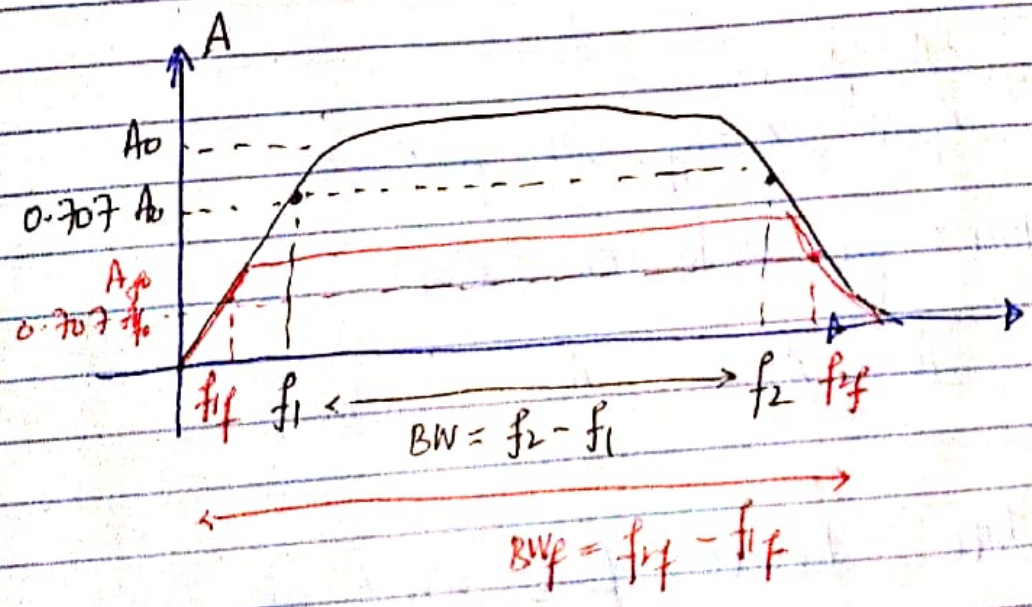 A
A0
0.707 A0
Af0
0.707 Af0
f1f f1 f2 f2f
BW = f2 - f1
BWf = f2f - f1f